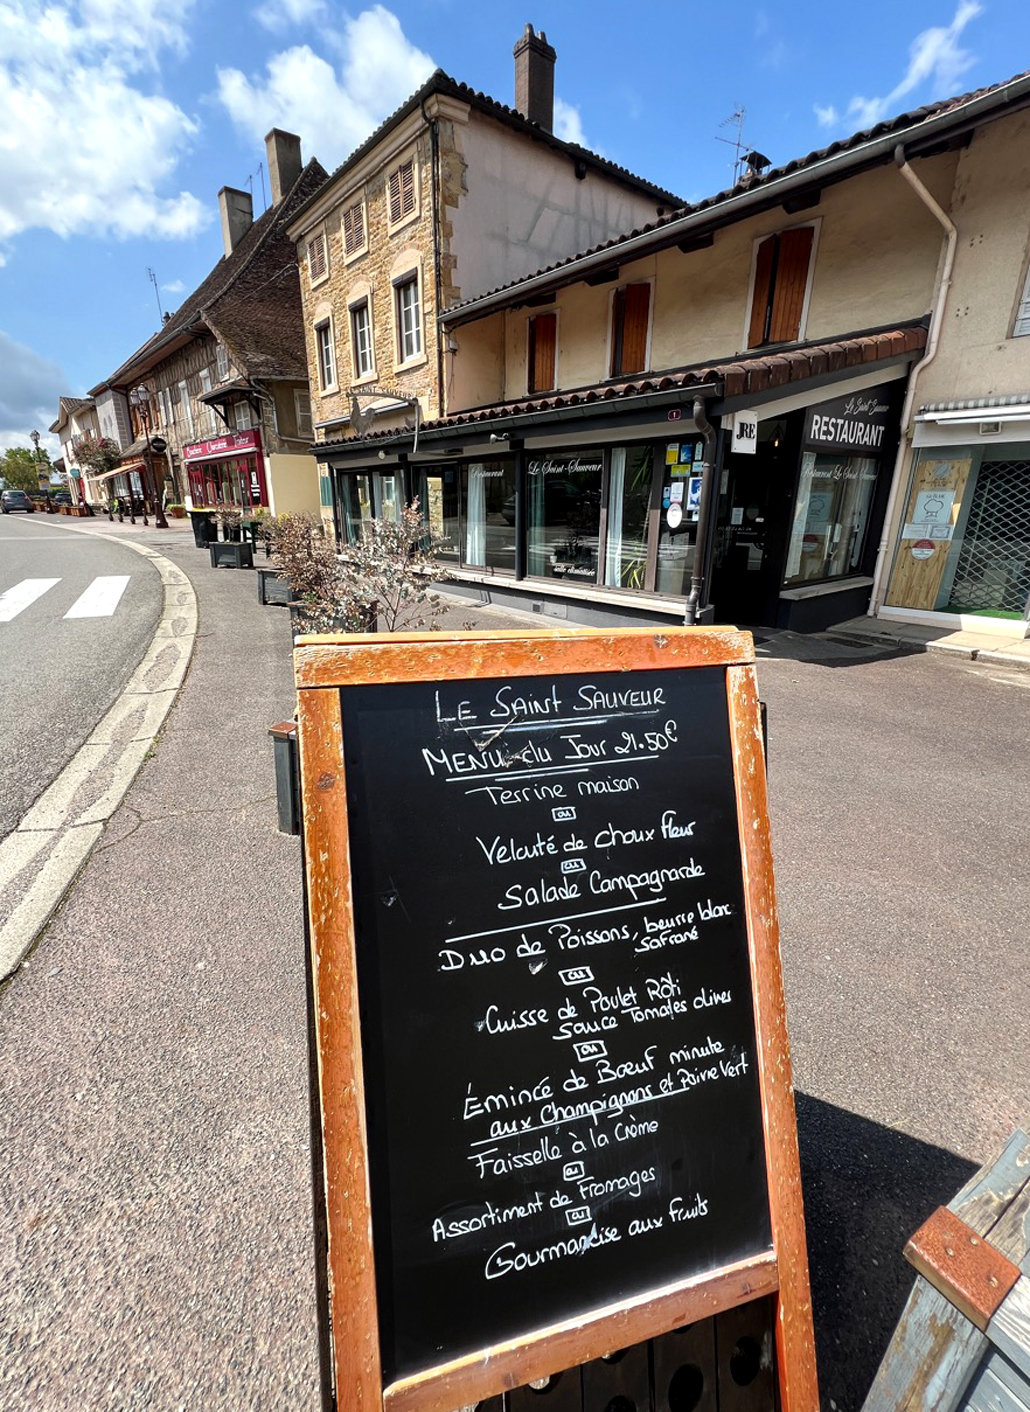 LE SAINT SAUVEUR
Boucherie Charcuterie Traiteur
JRE
Le Saint Sauveur
RESTAURANT
Restaurant
Le Saint-Sauveur
Restaurant Le Saint Sauveur
salle climatisée
1
LE SAINT SAUVEUR
MENU du Jour 21.50€
Terrine maison
ou
Velouté de choux fleur
ou
Salade Campagnarde
Duo de Poissons, beurre blanc
Safrané
ou
Cuisse de Poulet Rôti
Sauce Tomates olives
ou
Émincé de Bœuf minute
aux Champignons et Poivre Vert
Faisselle à la Crème
ou
Assortiment de Fromages
ou
Gourmandise aux fruits